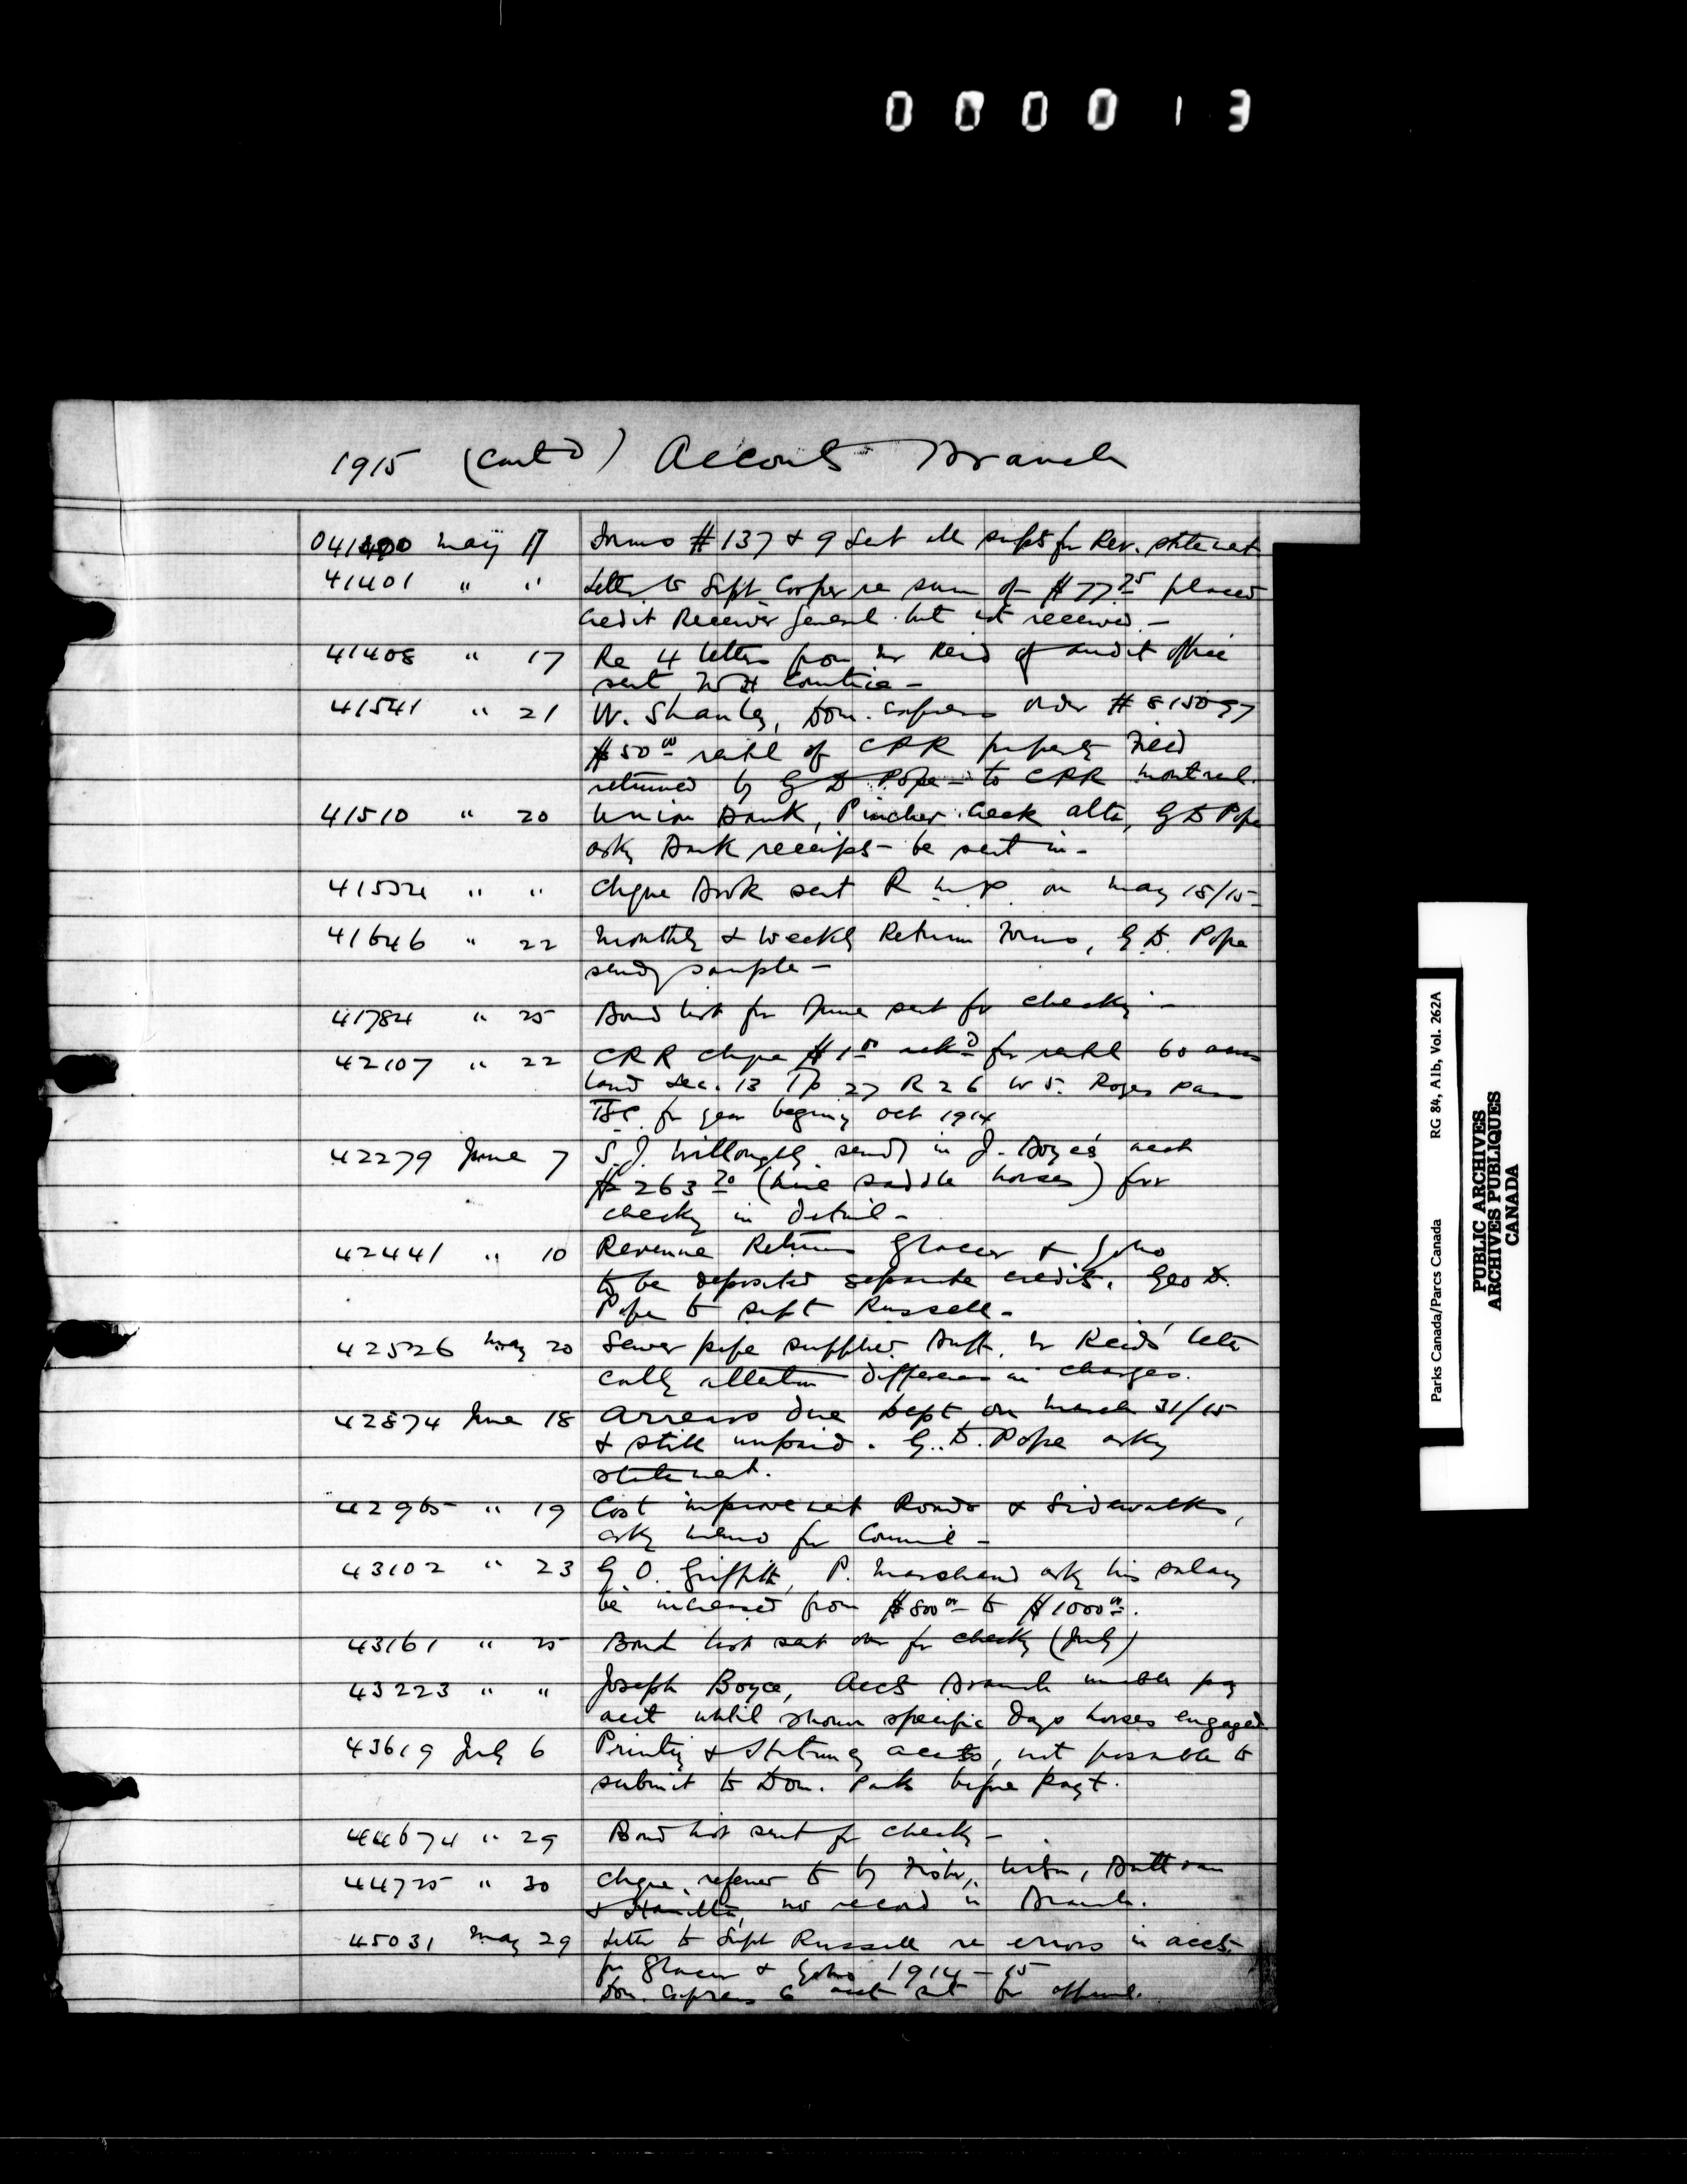 000013
1915 (Cont'd) Accounts Branch
041400 May 17 Forms # 137 & 9 Sent all supts for Rev. statement
41401 " " Letter to Supt. Cooper re sum of $77.25 placed
credit Receiver General but not received.-
41408 " 17 Re 4 letters from Mr Reid of audit office
sent W H
41541 " 21 W. Shanley, Dom. Express order # 815097
$50.00 rental of CPR property Field
returned by G D Pope - to CPR Montreal.
41510 " 20 Union Bank, Pincher Creek Alta, G D Pope
asks Bank receipts be sent in -
" " Cheque Book sent on May 18/15-
41646 " 22 Monthly & Weekly Return Forms, G. D. Pope
sends sample -
41784 " 25 Bond list for June sent for checking -
42107 " 22 CPR cheque $1.00 ackd for rental 60 acres
land Sec. 13 Tp 27 R 26 W 5. Rogers Pass
B.C. for year beginning Oct 1914
42279 June 7 S. J. Willoughby sends in J. Boyce's acct
$263.70 (hire saddle horses) for
checking in detail -
42441 " 10 Revenue Returns Glacier & Yoho
to be deposited separate credits. Geo D.
Pope to supt Russell -
42526 May 20 Sewer pipe supplied Banff. Mr Reid's letter
calling attention difference in charges.
42874 June 18 Arrears due Dept on March 31/15
& still unpaid. G. D. Pope asks
statement.
42965 " 19 Cost improvement Roads & Sidewalks,
asks memo for Council -
43102 " 23 G. O. Griffith, P. Marchand asks his salary
be increased from $800.00 to $1000.00.
43161 " 25 Bond list sent over for checking (July)
43223 " " Joseph Boyce, Accts Branch unable pay
acct until shown specific days horses engaged
43619 July 6 Printing & Stationery accts, not possible to
submit to Dom. Parks before payt.
44674 " 29 Bond list sent for checking -
44725 " 30 Cheque referred to by Fisher,
& Hamilton, no record in Branch.
45031 May 29 Letter to Supt Russell re errors in accts
for Glacier & Yoho 1914-15
Dom. Express Co acct sent for approval.
Parks Canada/Parcs Canada RG 84, A1b, Vol. 262A
PUBLIC ARCHIVES
ARCHIVES PUBLIQUES
CANADA